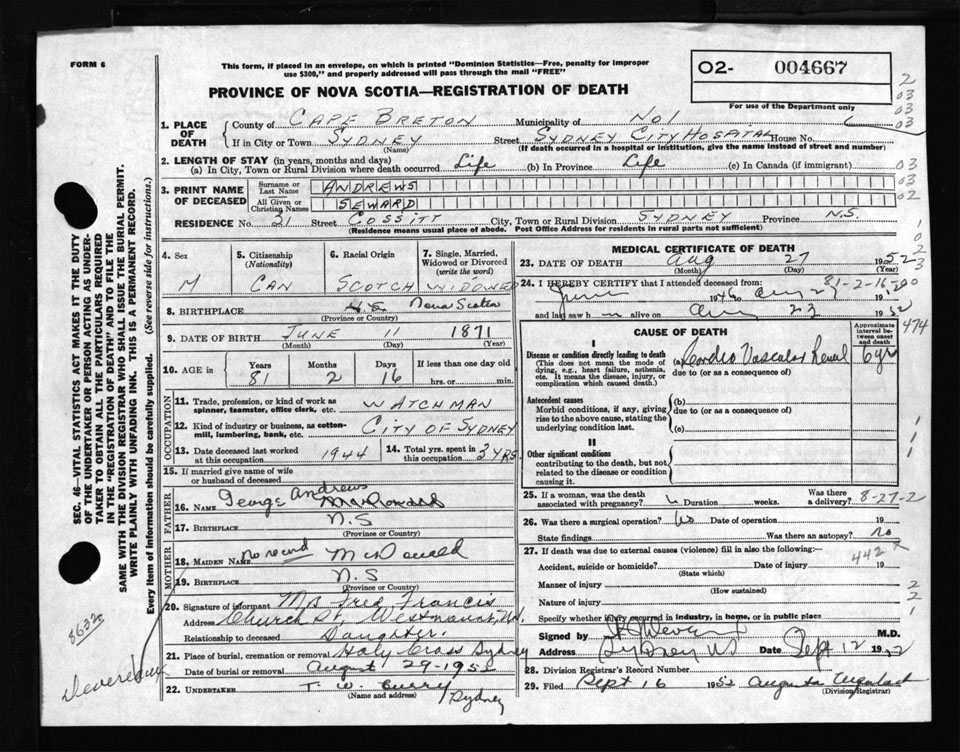 FORM 6
This form, if placed in an envelope, on which is printed "Dominion Statistics—Free, penalty for improper
use $300," and properly addressed will pass through the mail "FREE"
O2- 004667
For use of the Department only
PROVINCE OF NOVA SCOTIA—REGISTRATION OF DEATH
2
03
03
03
1. PLACE OF DEATH
County of CAPE BRETON Municipality of No 1
If in City or Town SYDNEY Street SYDNEY CITY HOSPITAL House No.
(Name) (If death occurred in a hospital or institution, give the name instead of street and number)
2. LENGTH OF STAY (in years, months and days)
(a) In City, Town or Rural Division where death occurred Life (b) In Province Life (c) In Canada (if immigrant)
03
03
02
3. PRINT NAME OF DECEASED
Surname or Last Name ANDREWS
All Given or Christian Names SEWARD
RESIDENCE No. 31 Street COSSITT City, Town or Rural Division SYDNEY Province N.S.
(Residence means usual place of abode. Post Office Address for residents in rural parts not sufficient)
4. Sex M
5. Citizenship (Nationality) CAN
6. Racial Origin SCOTCH
7. Single, Married, Widowed or Divorced (write the word) WIDOWED
8. BIRTHPLACE Nova Scotia
(Province or Country)
9. DATE OF BIRTH JUNE 11 1871
(Month) (Day) (Year)
10. AGE in Years 81 Months 2 Days 16 If less than one day old hrs. or min.
OCCUPATION
11. Trade, profession, or kind of work as spinner, teamster, office clerk, etc. WATCHMAN
12. Kind of industry or business, as cotton-mill, lumbering, bank, etc. CITY OF SYDNEY
13. Date deceased last worked at this occupation 1944
14. Total yrs. spent in this occupation 3 YRS
15. If married give name of wife or husband of deceased
FATHER
16. Name George Andrews
17. Birthplace N.S
(Province or Country)
MOTHER
18. Maiden Name no record McDonald
19. Birthplace N.S
(Province or Country)
20. Signature of informant Mrs Fred Francis
Address Church St, Westmount, N.S.
Relationship to deceased Daughter.
21. Place of burial, cremation or removal Holy Cross Sydney
Date of burial or removal August 29-1952
22. UNDERTAKER T. W. Curry Sydney
(Name and address)
MEDICAL CERTIFICATE OF DEATH
23. DATE OF DEATH Aug 27 1952
(Month) (Day) (Year)
1
0
2
3
24. I HEREBY CERTIFY that I attended deceased from 81-2-16
June 1946 to Aug 27 19
and last saw h m alive on Aug 23 1952
CAUSE OF DEATH
Approximate interval between onset and death
474
I
Disease or condition directly leading to death
(This does not mean the mode of dying, e.g., heart failure, asthenia, etc. It means the disease, injury, or complication which caused death.)
(a) Cardio Vascular Renal 6 yrs
due to (or as a consequence of)
Antecedent causes
Morbid conditions, if any, giving rise to the above cause, stating the underlying condition last.
(b)
due to (or as a consequence of)
(c)
II
Other significant conditions
contributing to the death, but not related to the disease or condition causing it.
1
1
1
25. If a woman, was the death associated with pregnancy? Duration weeks. Was there a delivery? 8-27-2
26. Was there a surgical operation? No Date of operation 19
State findings Was there an autopsy? no
27. If death was due to external causes (violence) fill in also the following:—
442 x
Accident, suicide or homicide? Date of injury 19
(State which)
Manner of injury
(How sustained)
Nature of injury
2
2
1
Specify whether injury occurred in industry, in home, or in public place
Signed by M.D.
Address Sydney NS Date Sept 12 1952
28. Division Registrar's Record Number
29. Filed Sept 16 1952 Augusta
(Division Registrar)
SEC. 46—VITAL STATISTICS ACT MAKES IT THE DUTY
OF THE UNDERTAKER OR PERSON ACTING AS UNDER-
TAKER TO OBTAIN ALL THE PARTICULARS REQUIRED
IN THE "REGISTRATION OF DEATH" AND TO FILE THE
SAME WITH THE DIVISION REGISTRAR WHO SHALL ISSUE THE BURIAL PERMIT.
WRITE PLAINLY WITH UNFADING INK. THIS IS A PERMANENT RECORD.
Every item of information should be carefully supplied. (See reverse side for instructions.)
Devereaux